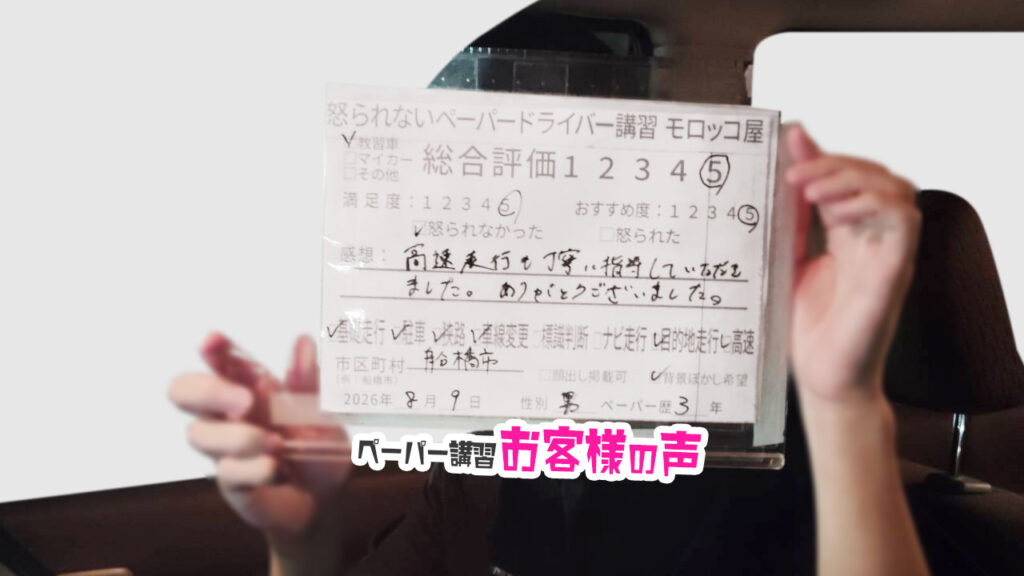 怒られないペーパードライバー講習 モロッコ屋
✓教習車
□マイカー
□その他
総合評価 1 2 3 4 ⑤
満足度：1 2 3 4 ⑤
おすすめ度：1 2 3 4 ⑤
☑怒られなかった □怒られた
感想：高速走行も丁寧に指導していただき
ました。ありがとうございました。
✓基礎走行 ✓駐車 ✓狭路 ✓車線変更 □標識判断 □ナビ走行 ✓目的地走行 ✓高速
市区町村 船橋市
(例：船橋市)
□顔出し掲載可 ✓背景ぼかし希望
2026年 8月 9日 性別 男 ペーパー歴 3 年
ペーパー講習 お客様の声